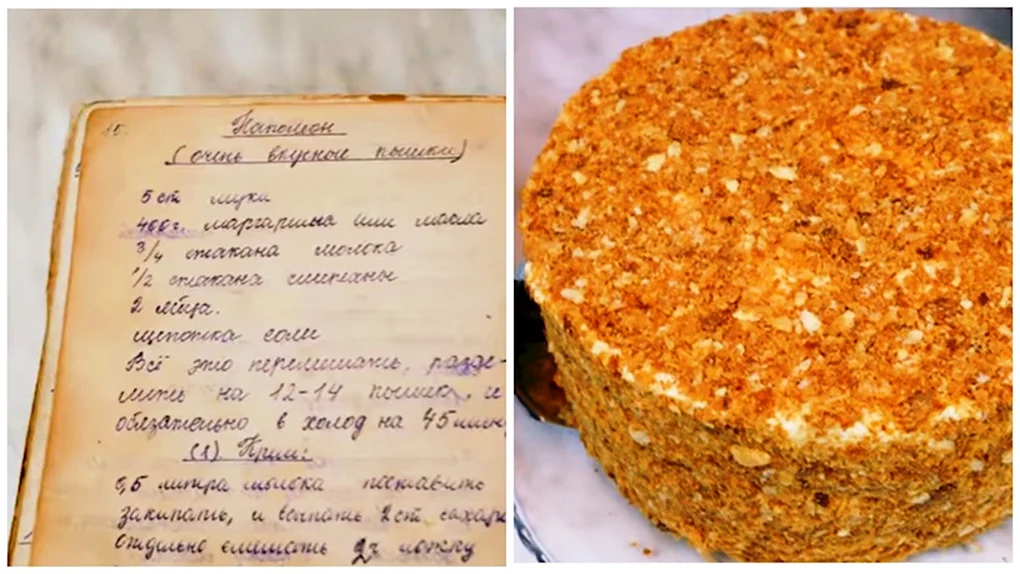 15.
Наполеон
(очень вкусные пышки)
5 ст муки
400г. маргарина или масла
3/4 стакана молока
1/2 стакана сметаны
2 яйца.
щепотка соли
Всё это перемешать, разде-
лить на 12-14 пышек, и
обязательно в холод на 45 мин
(1) Крем:
0,5 литра молока поставить
закипать, и всыпать 2 ст. сахара
Отдельно смешать 2 ложку